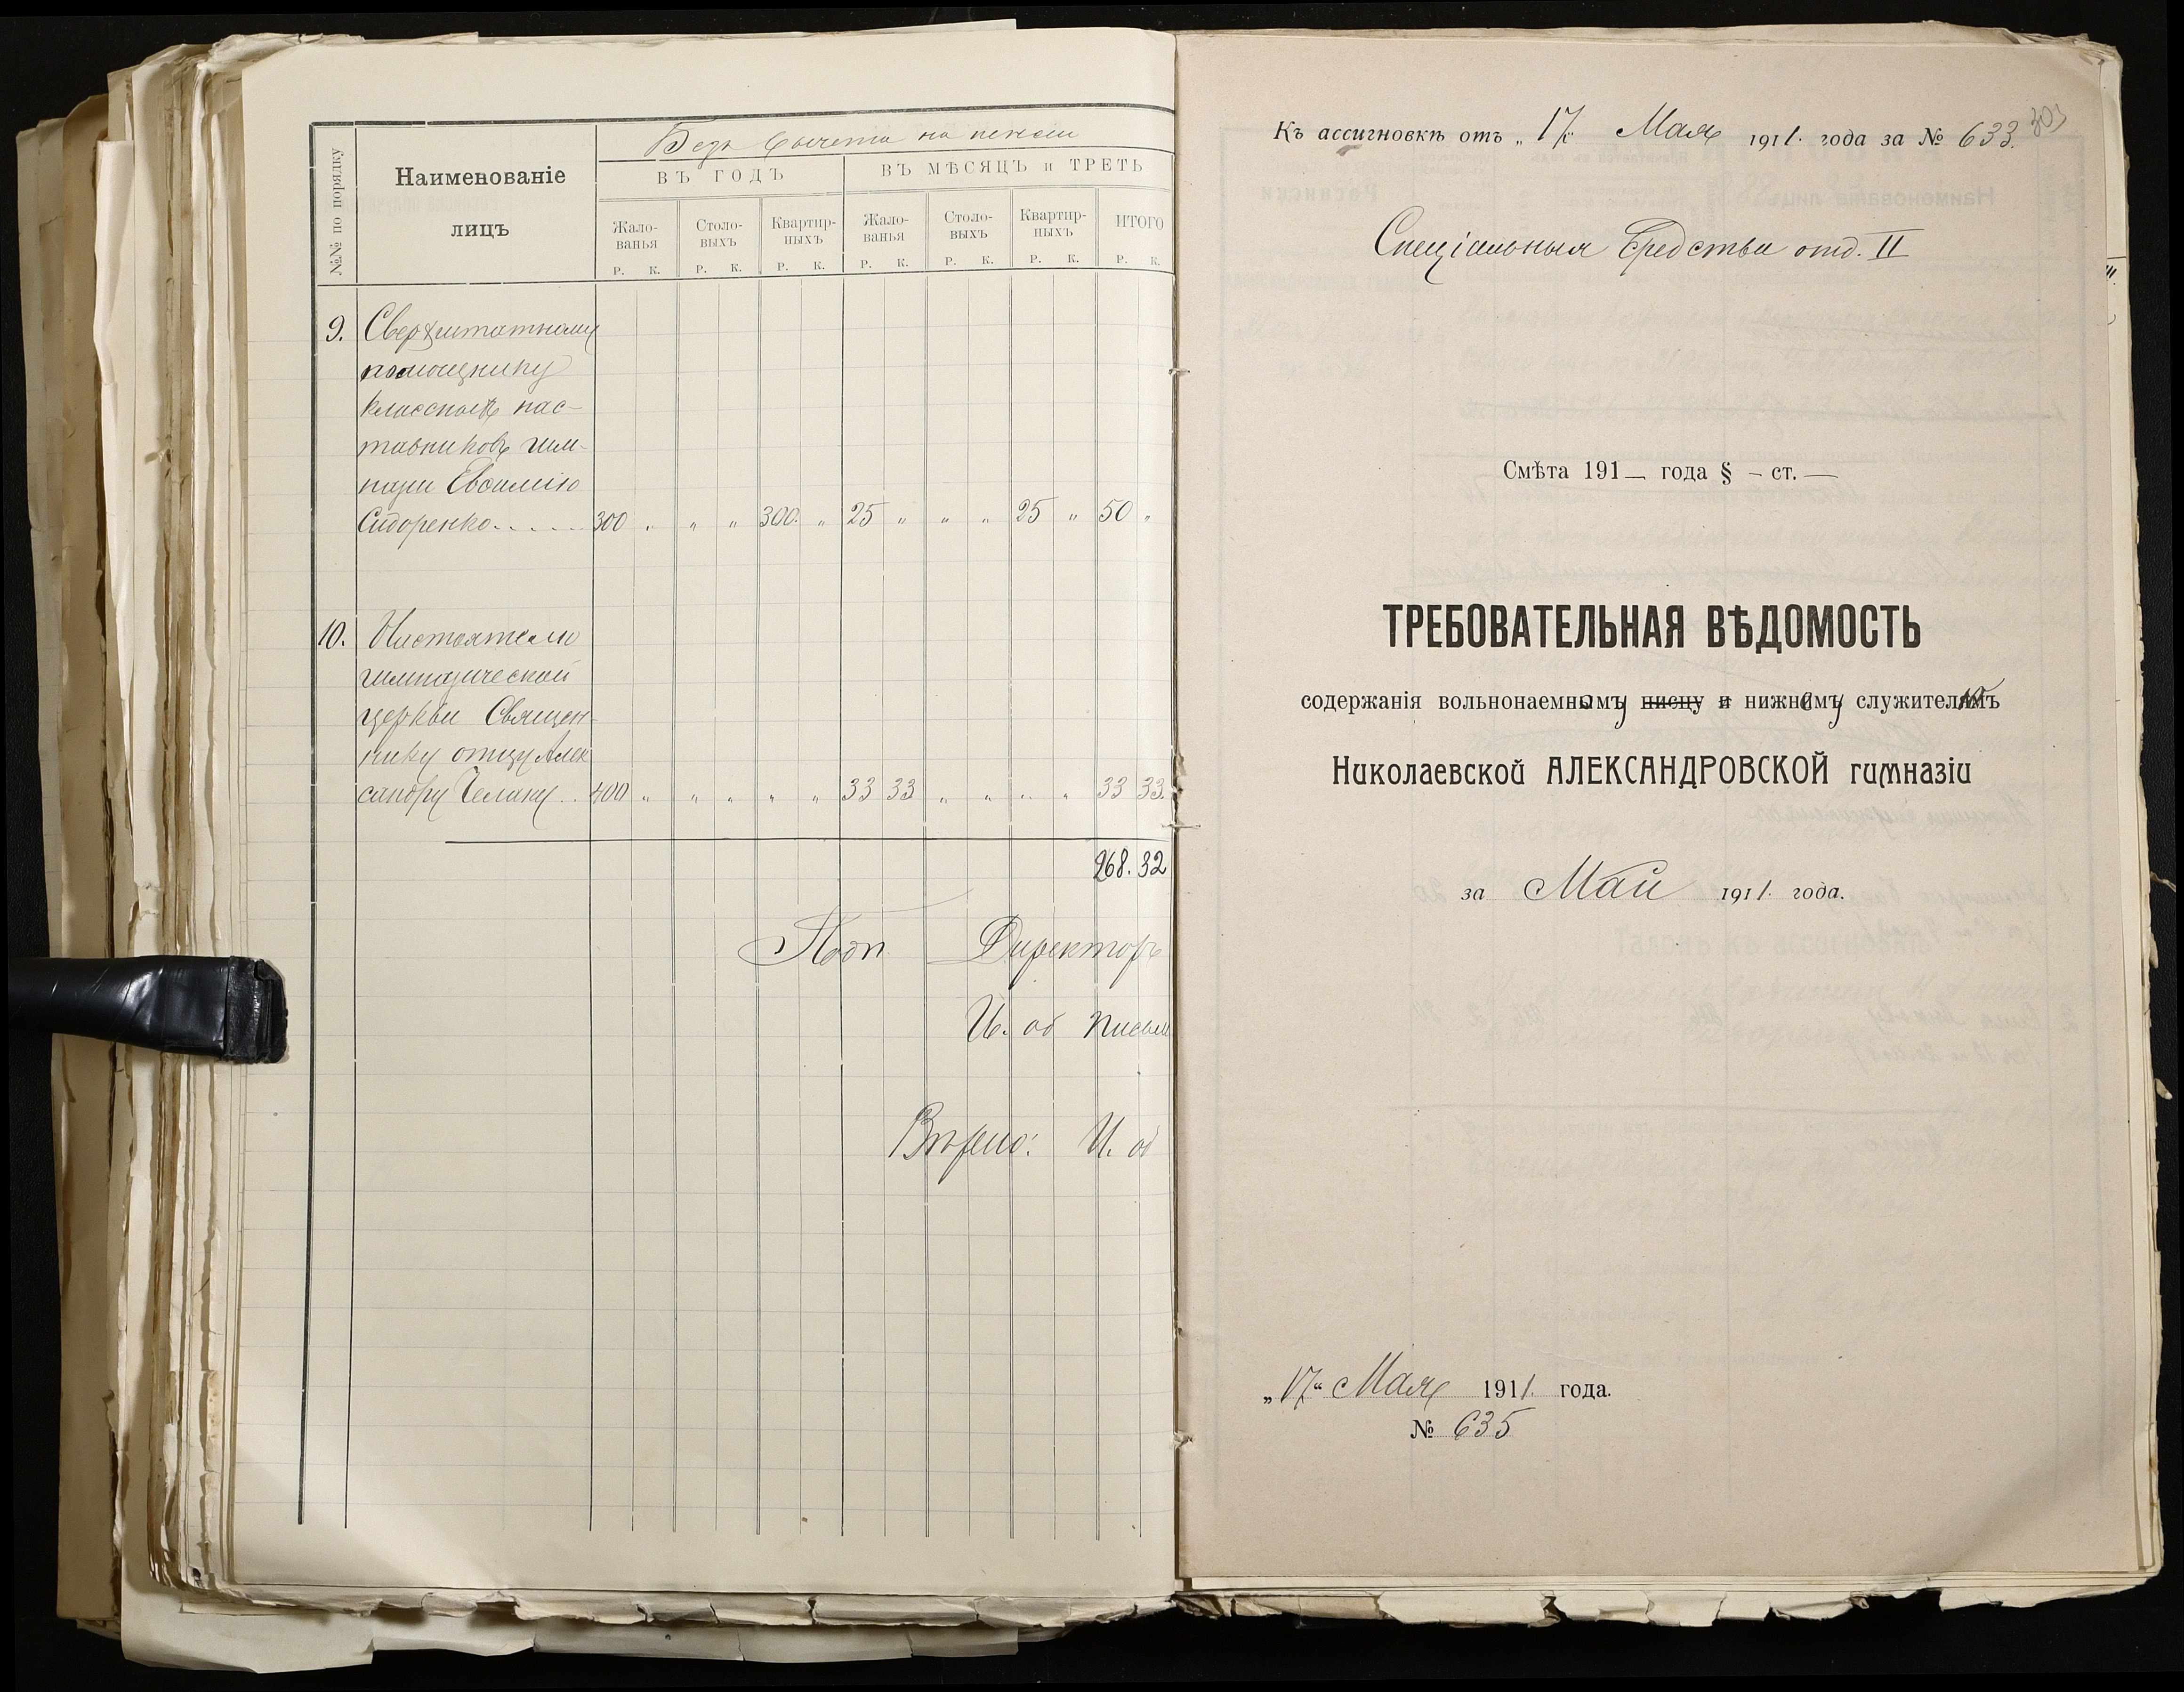 Безъ вычета на пенсии
№№ по порядку
Наименованіе
лицъ
ВЪ ГОДЪ
ВЪ МѢСЯЦЪ и ТРЕТЬ
Жало-
ванья
Столо-
выхъ
Квартир-
ныхъ
Жало-
ванья
Столо-
выхъ
Квартир-
ныхъ
ИТОГО
Р. К. Р. К. Р. К. Р. К. Р. К. Р. К. Р. К.
9. Сверхштатному
помощнику
классныхъ нас-
тавниковъ гим-
назіи
Сидоренко..... 300 „ „ „ 300. „ 25 „ „ „ 25 „ 50 „
10. Настоятелю
гимназической
церкви Священ-
нику отцу Алек
сандру .. 400 „ „ „ „ „ 33 33 „ „ „ „ 33 33.
268. 32
Подп Директоръ
И. об письм
Вѣрно: И. об
303
Къ ассигновкѣ отъ „17“ Мая 1911. года за № 633.
Спеціальныя Средства отд. II
Смѣта 191— года § – ст. —
ТРЕБОВАТЕЛЬНАЯ ВѢДОМОСТЬ
содержанія вольнонаемному писцу и нижнему служителю
Николаевской АЛЕКСАНДРОВСКОЙ гимназіи
за Май 1911. года.
„17“ Мая 1911. года.
№ 635